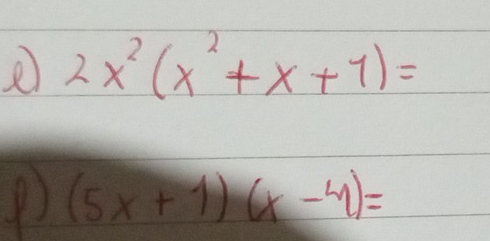 e) 2x² (x² + x + 1) =
f) (5x + 1) (x - 4) =